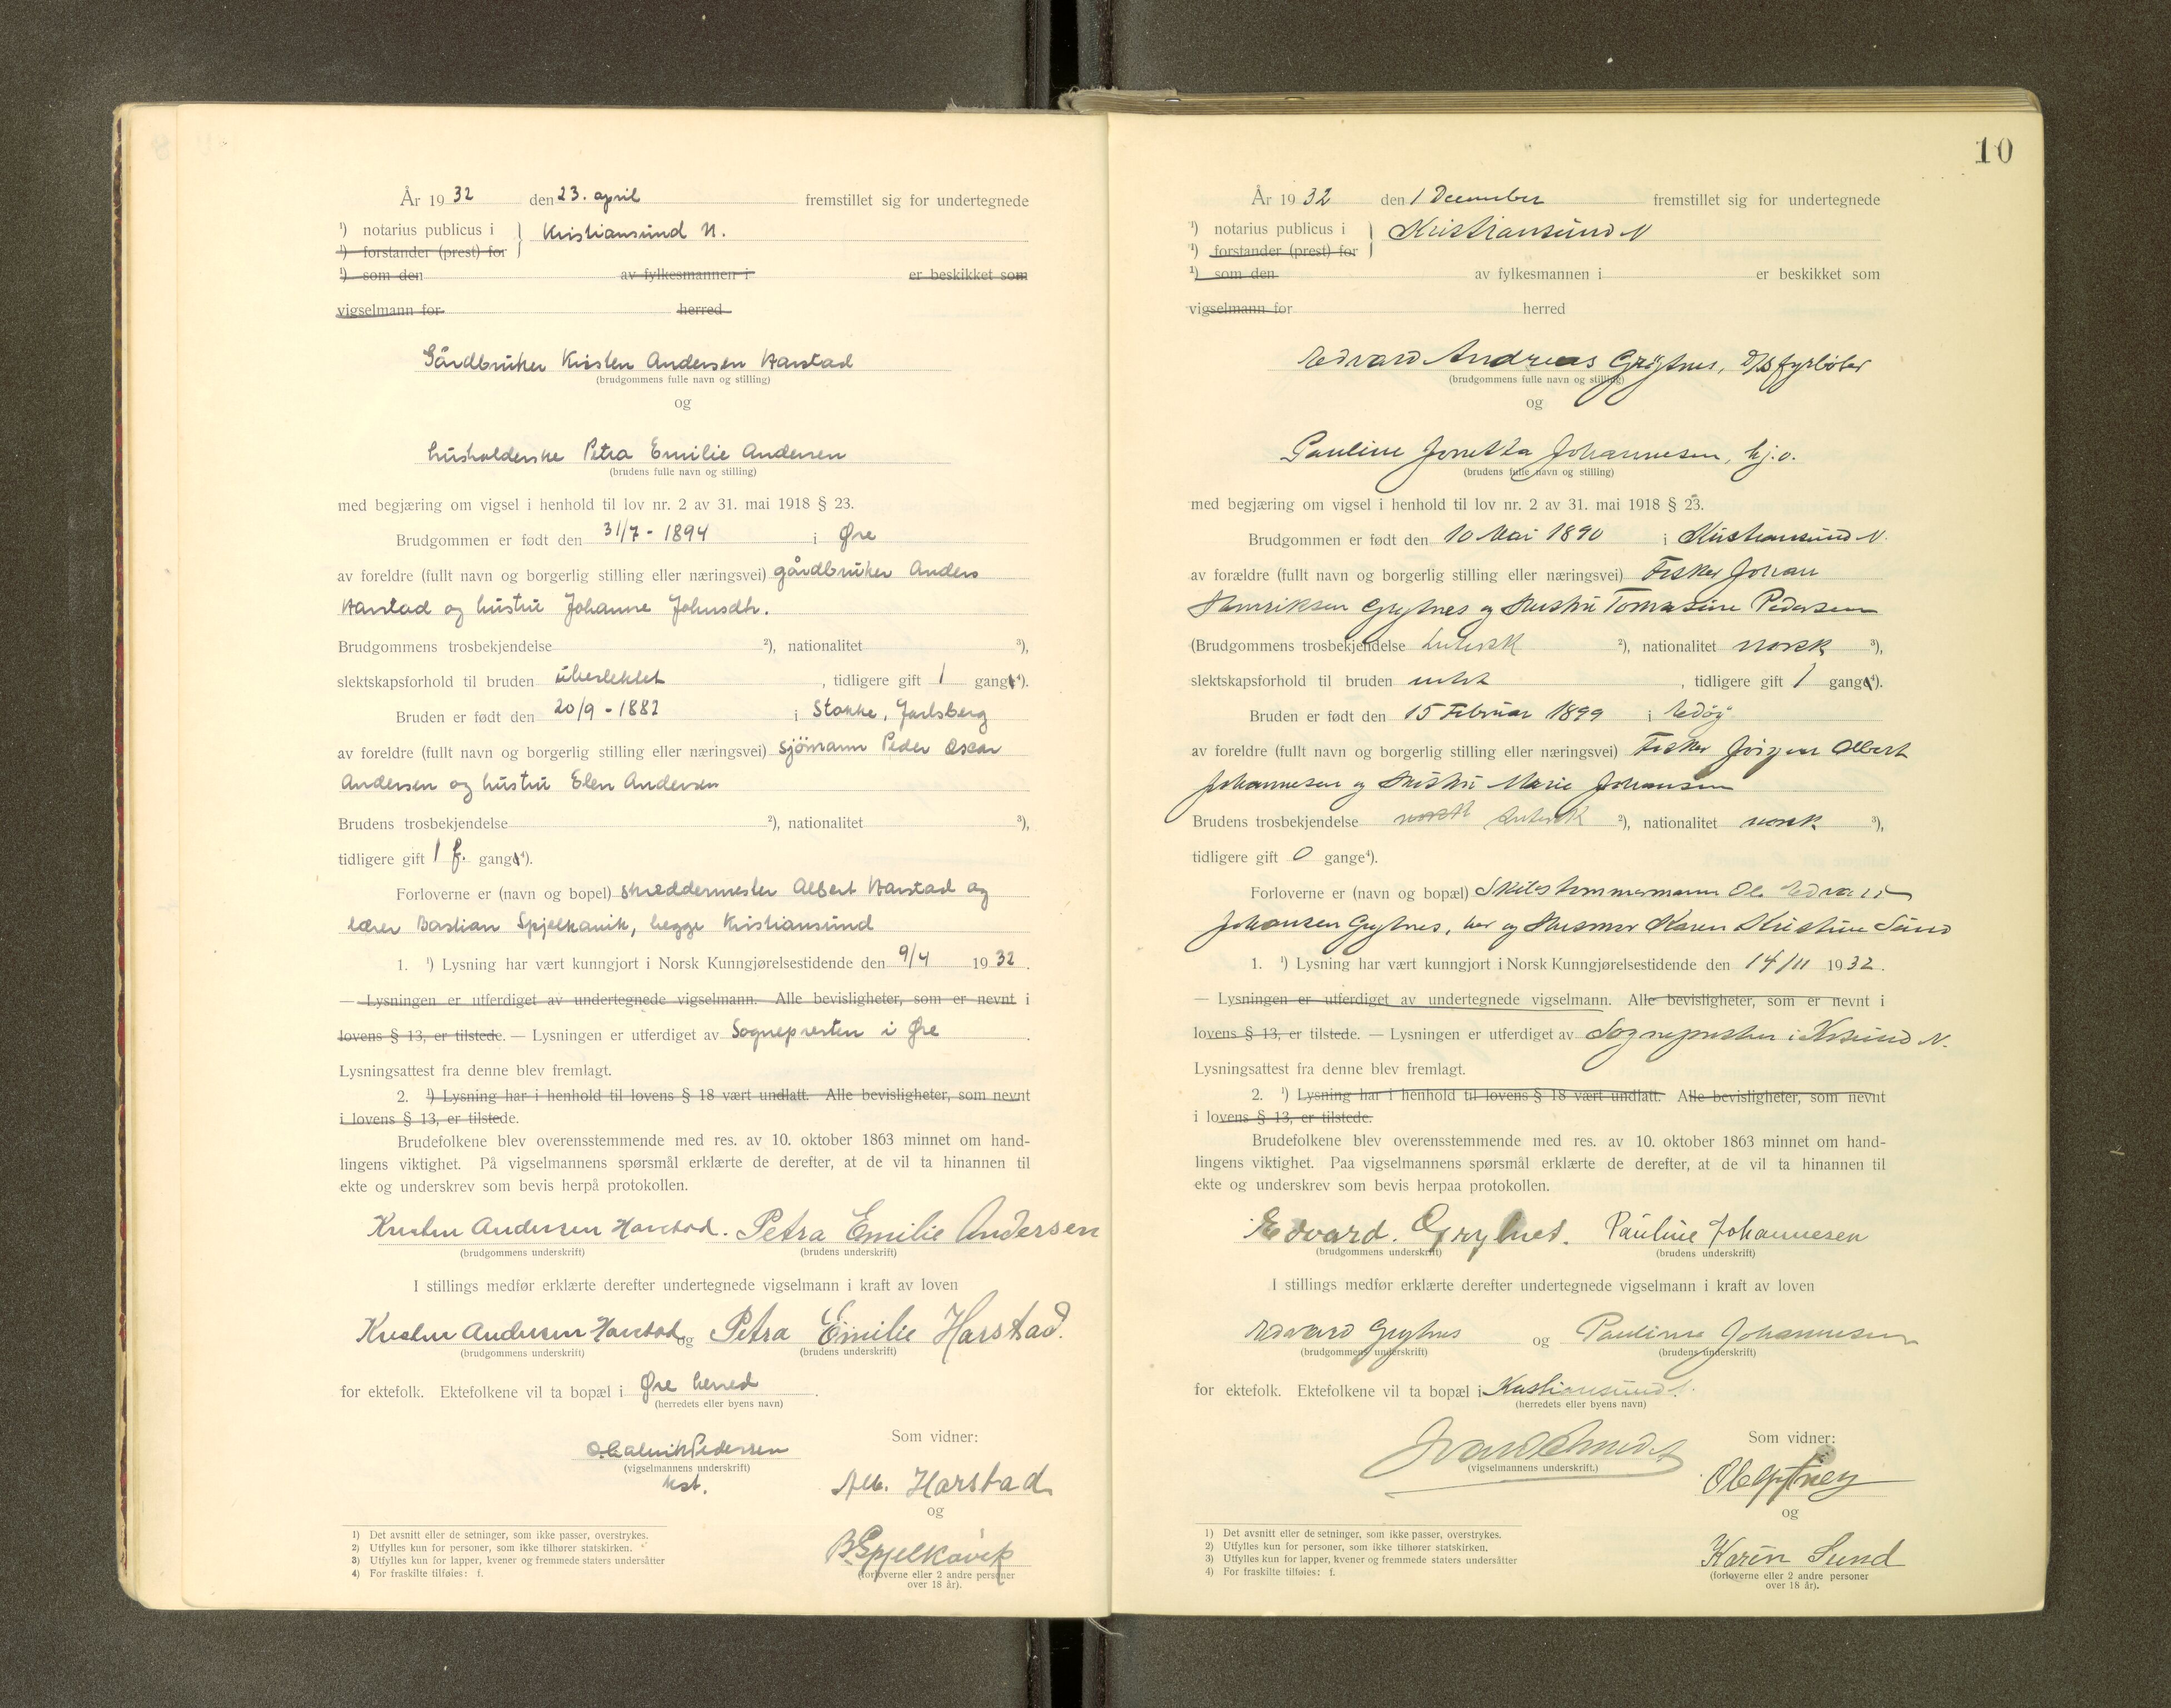 År 1932 den 23. april fremstillet sig for undertegnede
¹) notarius publicus i } Kristiansund N.
¹) forstander (prest) for
¹) som den av fylkesmannen i er beskikket som
vigselmann for herred
Gårdbruker Kristen Andersen Harstad
(brudgommens fulle navn og stilling)
og
husholderske Petra Emilie Andersen
(brudens fulle navn og stilling)
med begjæring om vigsel i henhold til lov nr. 2 av 31. mai 1918 § 23.
Brudgommen er født den 31/7 - 1894 i Øre
av foreldre (fullt navn og borgerlig stilling eller næringsvei) gårdbruker Anders
Harstad og hustru Johanne Johnsdtr.
Brudgommens trosbekjendelse ²), nationalitet ³),
slektskapsforhold til bruden ubeslektet, tidligere gift 1 gang⁴).
Bruden er født den 20/9 - 1882 i Stokke, Jarlsberg
av foreldre (fullt navn og borgerlig stilling eller næringsvei) sjömann Peder Oscar
Andersen og hustru Elen Andersen
Brudens trosbekjendelse ²), nationalitet ³),
tidligere gift 1 f. gang⁴).
Forloverne er (navn og bopel) skreddermester Albert Harstad og
lærer Bastian Spjelkavik, begge Kristiansund
1. ¹) Lysning har vært kunngjort i Norsk Kunngjørelsestidende den 9/4 1932.
— Lysningen er utferdiget av undertegnede vigselmann. Alle bevisligheter, som er nevnt i
lovens § 13, er tilstede. — Lysningen er utferdiget av Sognepresten i Øre.
Lysningsattest fra denne blev fremlagt.
2. ¹) Lysning har i henhold til lovens § 18 vært undlatt. Alle bevisligheter, som nevnt
i lovens § 13, er tilstede.
Brudefolkene blev overensstemmende med res. av 10. oktober 1863 minnet om hand-
lingens viktighet. På vigselmannens spørsmål erklærte de derefter, at de vil ta hinannen til
ekte og underskrev som bevis herpå protokollen.
Kristen Andersen Harstad. Petra Emilie Andersen
(brudgommens underskrift) (brudens underskrift)
I stillings medfør erklærte derefter undertegnede vigselmann i kraft av loven
Kristen Andersen Harstad og Petra Emilie Harstad.
(brudgommens underskrift) (brudens underskrift)
for ektefolk. Ektefolkene vil ta bopæl i Øre herred.
(herredets eller byens navn)
Pedersen
(vigselmannens underskrift)
kst.
Som vidner:
Alb. Harstad
og
B Spjelkavik
(forloverne eller 2 andre personer
over 18 år).
1) Det avsnitt eller de setninger, som ikke passer, overstrykes.
2) Utfylles kun for personer, som ikke tilhører statskirken.
3) Utfylles kun for lapper, kvener og fremmede staters undersåtter
4) For fraskilte tilføies: f.
10
År 1932 den 1 December fremstillet sig for undertegnede
¹) notarius publicus i } Kristiansund N
¹) forstander (prest) for
¹) som den av fylkesmannen i er beskikket som
vigselmann for herred
Edvard Andreas Grytnes, D/S fyrböter
(brudgommens fulle navn og stilling)
og
Pauline Jonetta Johannesen, hj.v.
(brudens fulle navn og stilling)
med begjæring om vigsel i henhold til lov nr. 2 av 31. mai 1918 § 23.
Brudgommen er født den 10 Mai 1890 i Kristiansund N.
av forældre (fullt navn og borgerlig stilling eller næringsvei) Fisker Johan
Henriksen Grytnes og Hustru Tomasine Pedersen
(Brudgommens trosbekjendelse Luthersk ²), nationalitet norsk ³),
slektskapsforhold til bruden intet, tidligere gift 1 gang⁴).
Bruden er født den 15 Februar 1899 i Edöy
av foreldre (fullt navn og borgerlig stilling eller næringsvei) Fisker Jörgen Albert
Johannesen og Hustru Marie Johansen
Brudens trosbekjendelse norsk Luthersk ²), nationalitet norsk ³),
tidligere gift 0 gange⁴).
Forloverne er (navn og bopæl) Skibstømmermann Ole Edvard
Johansen Grytnes, her og Husmor Karen Kristine Sund
1. ¹) Lysning har vært kunngjort i Norsk Kunngjørelsestidende den 14/11 1932.
— Lysningen er utferdiget av undertegnede vigselmann. Alle bevisligheter, som er nevnt i
lovens § 13, er tilstede. — Lysningen er utferdiget av Sognepresten i Krsund N.
Lysningsattest fra denne blev fremlagt.
2. ¹) Lysning har i henhold til lovens § 18 vært undlatt. Alle bevisligheter, som nevnt
i lovens § 13, er tilstede.
Brudefolkene blev overensstemmende med res. av 10. oktober 1863 minnet om hand-
lingens viktighet. Paa vigselmannens spørsmål erklærte de derefter, at de vil ta hinannen til
ekte og underskrev som bevis herpaa protokollen.
Edvard. Grytnes. Pauline Johannesen
(brudgommens underskrift) (brudens underskrift)
I stillings medfør erklærte derefter undertegnede vigselmann i kraft av loven
Edvard Grytnes og Pauline Johannesen
(brudgommens underskrift) (brudens underskrift)
for ektefolk. Ektefolkene vil ta bopæl i Kristiansund N.
(herredets eller byens navn)
(vigselmannens underskrift.)
Som vidner:
og
Karen Sund
(forloverne eller 2 andre personer
over 18 år).
1) Det avsnitt eller de setninger, som ikke passer, overstrykes.
2) Utfylles kun for personer, som ikke tilhører statskirken.
3) Utfylles kun for lapper, kvener og fremmede staters undersåtter
4) For fraskilte tilføies: f.